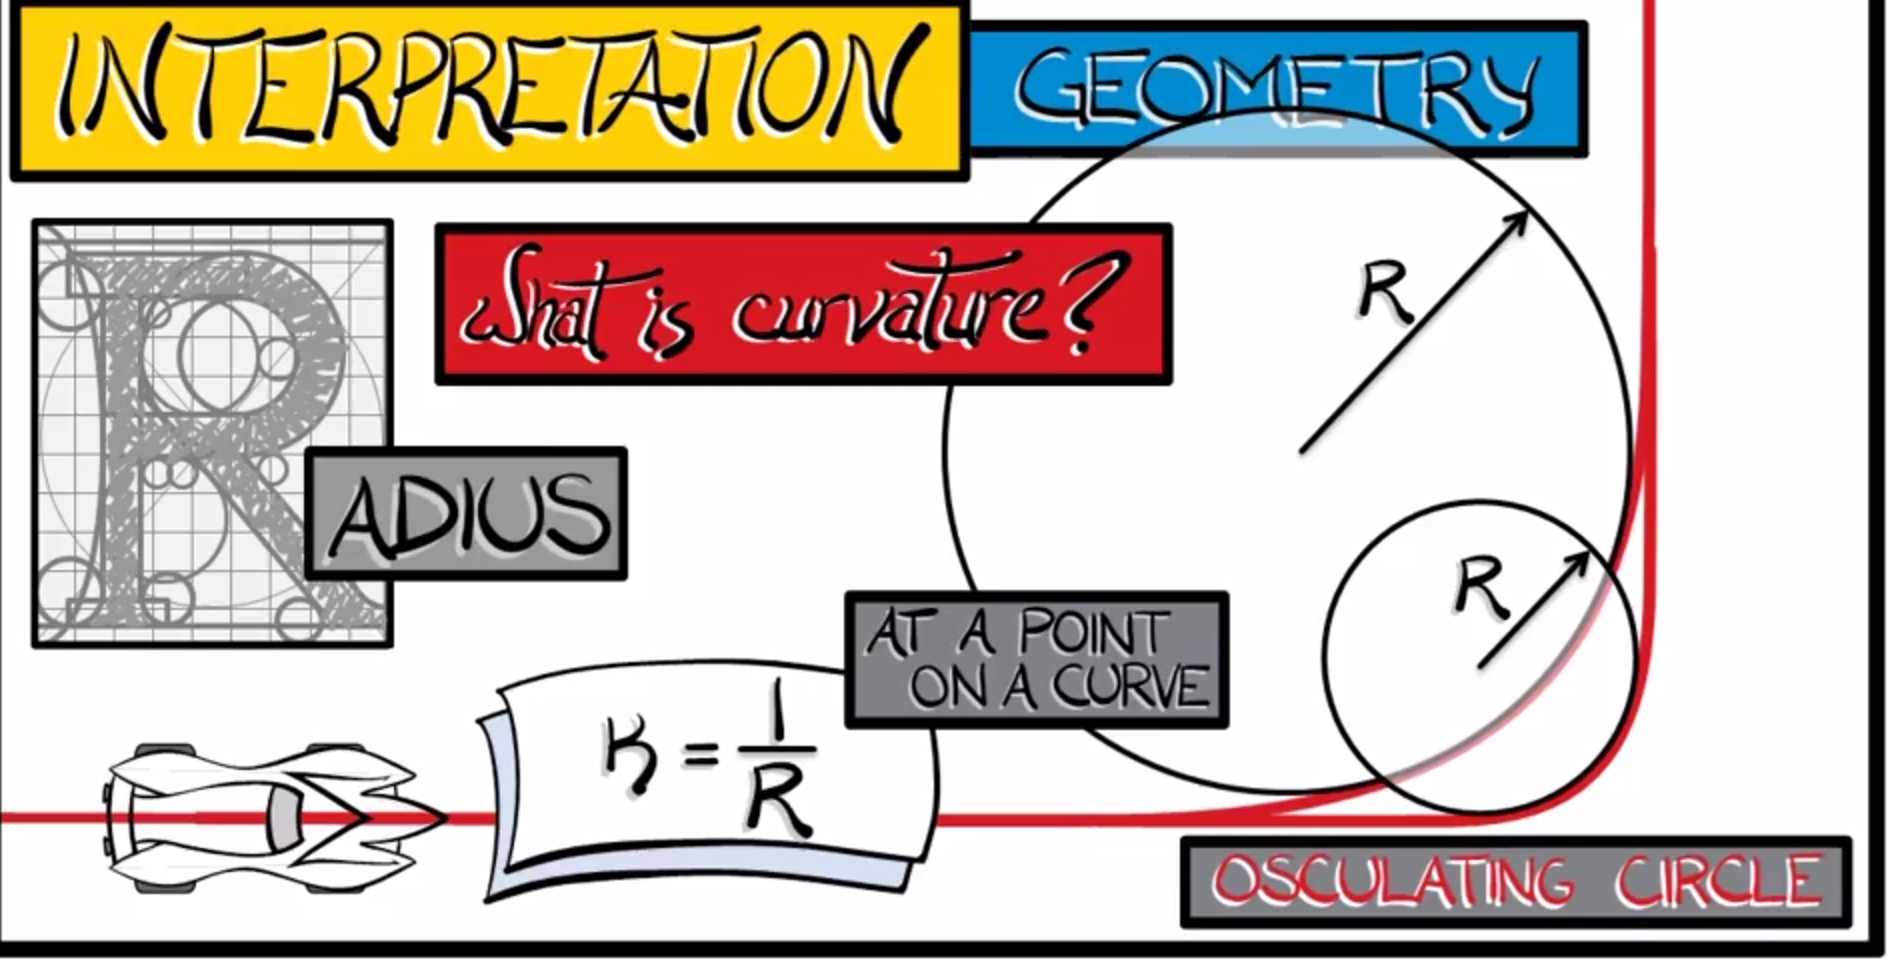 INTERPRETATION
GEOMETRY
What is curvature?
R
RADIUS
AT A POINT
ON A CURVE
R
κ = 1/R
OSCULATING CIRCLE